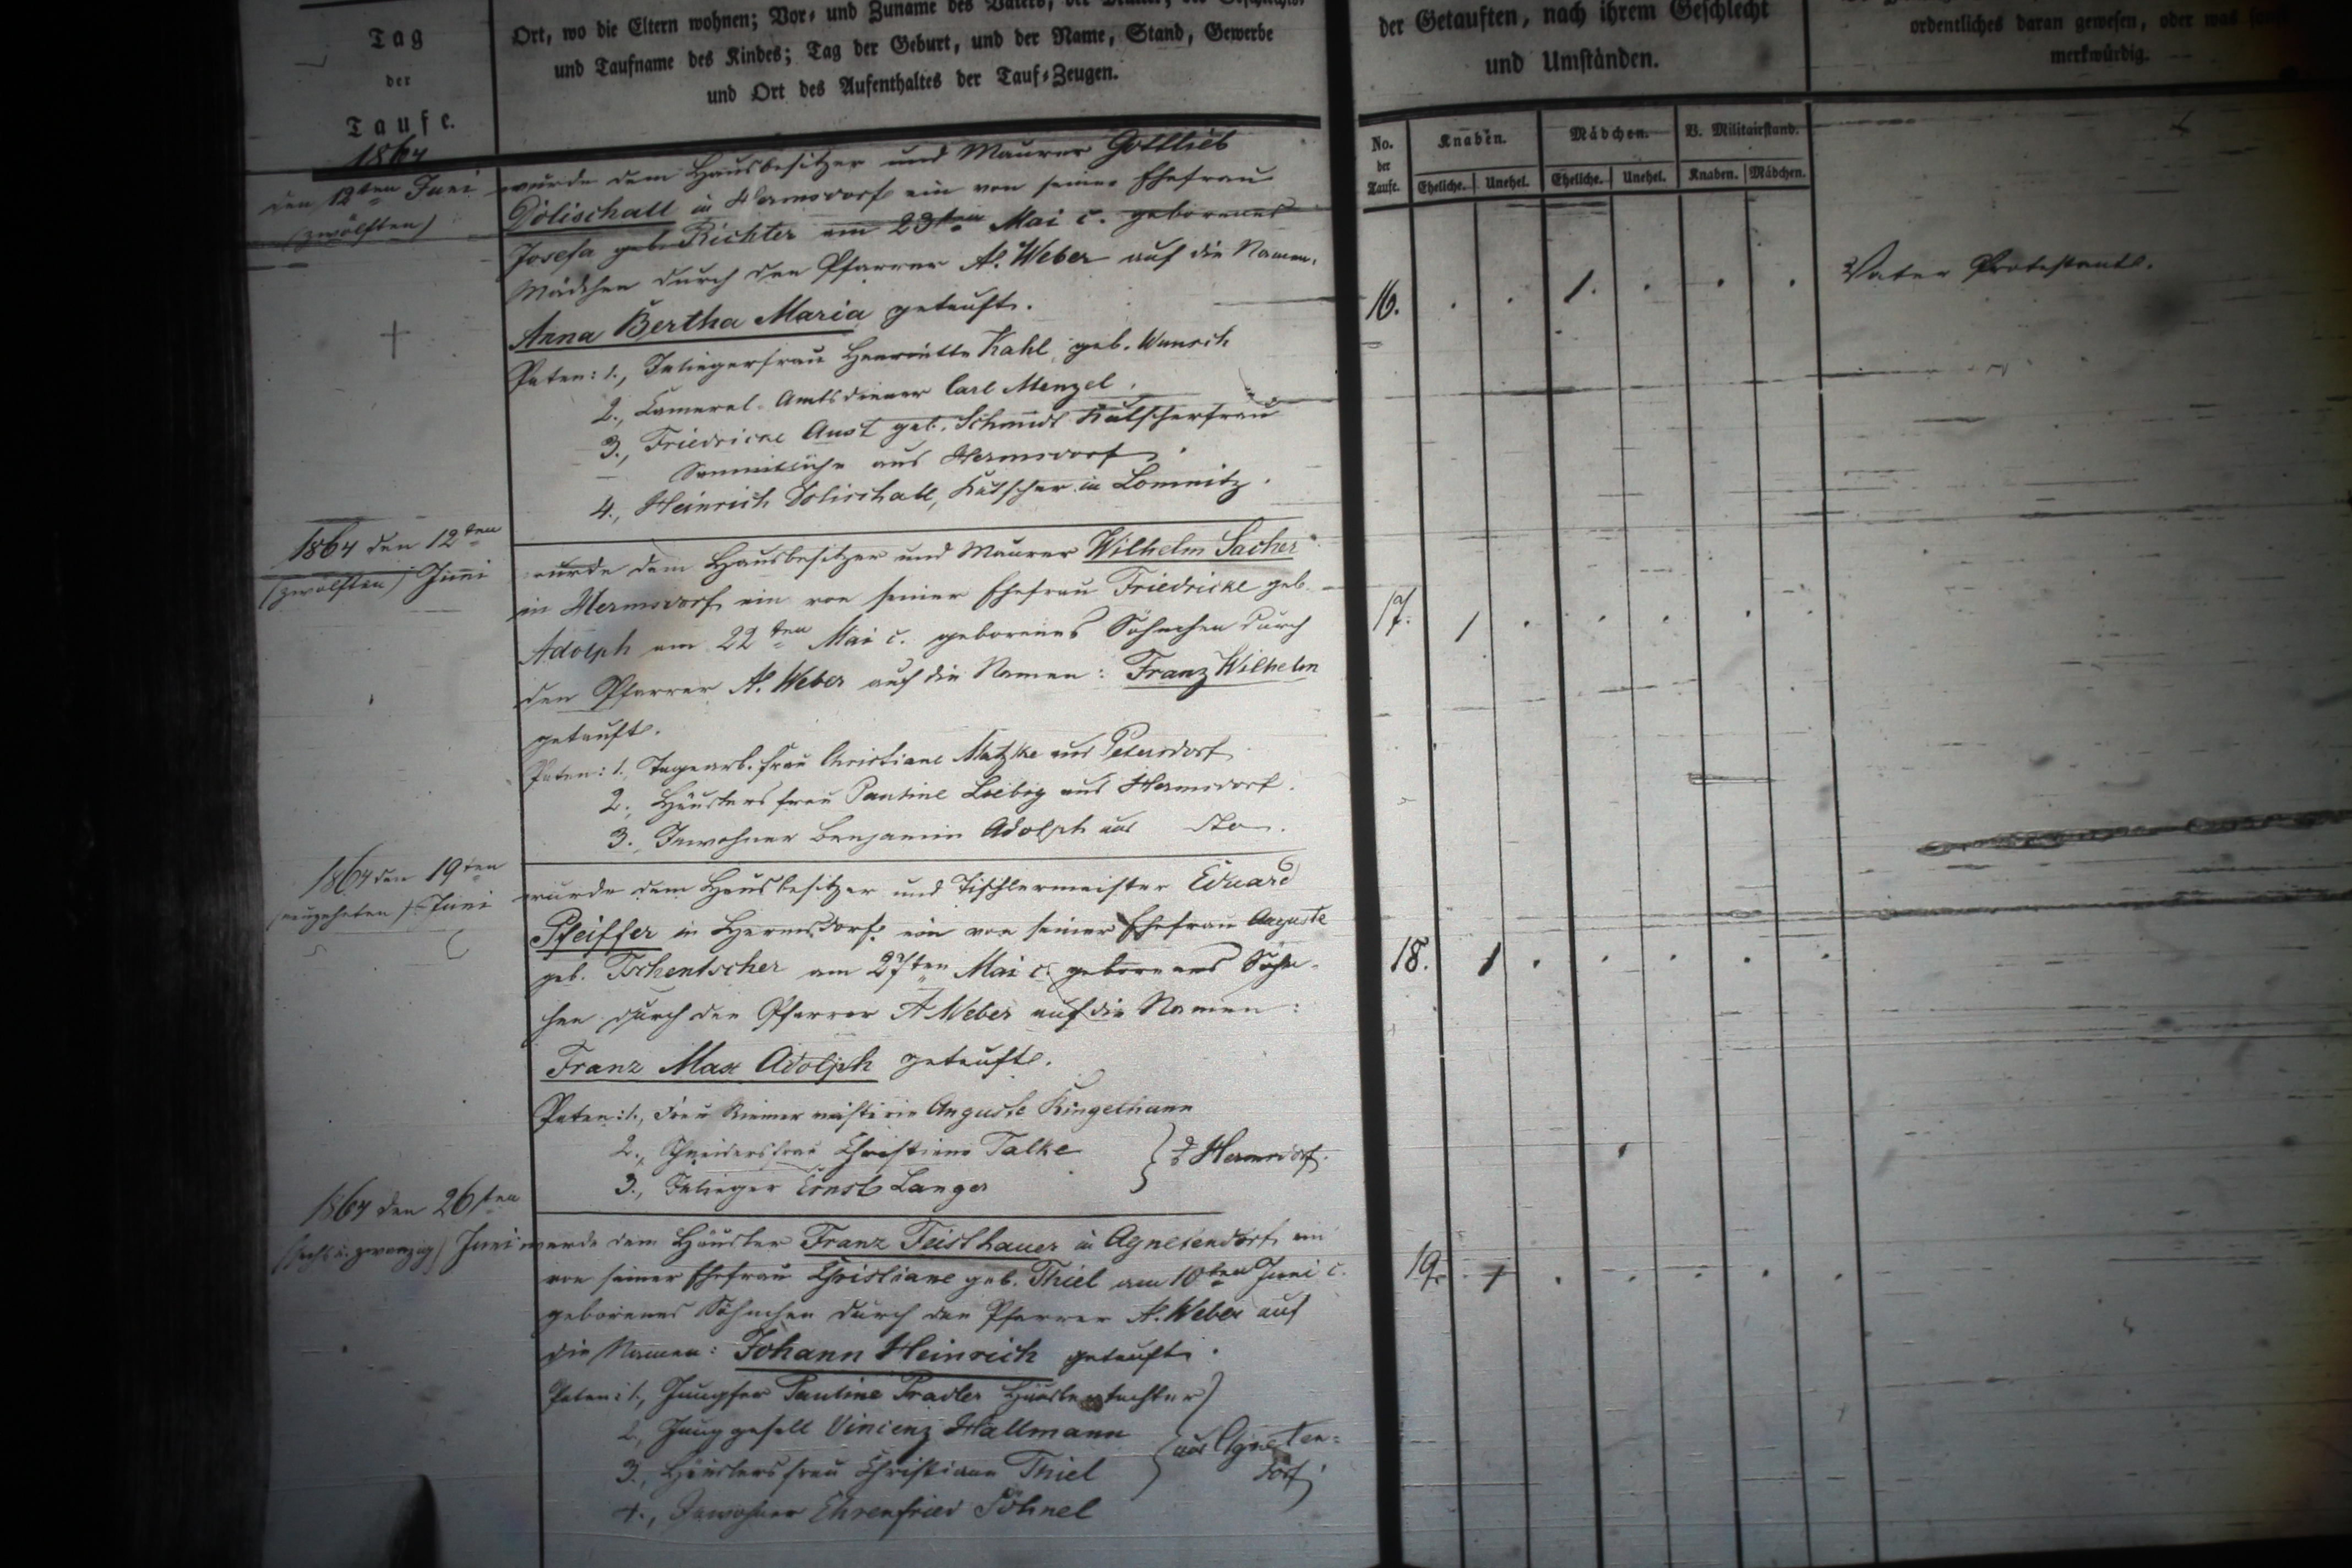 Tag
der
Taufe.
1864
Ort, wo die Eltern wohnen; Vor- und Zuname des Vaters, der
und Taufname des Kindes; Tag der Geburt, und der Name, Stand, Gewerbe
und Ort des Aufenthaltes der Tauf-Zeugen.
der Getauften, nach ihrem Geschlecht
und Umständen.
ordentliches daran gewesen, oder was sonst
merkwürdig.
No. der Taufe.
Knaben. Mädchen. V. Militairstand.
Eheliche. Unehel. Eheliche. Unehel. Knaben. Mädchen.
den 12ten Juni
(zwölften)
wurde dem Hausbesitzer und Maurer Gottlieb
Dolischall in Hermsdorf ein von seiner Ehefrau
Josefa geb. Richter am 23ten Mai c. geborenes
Mädchen durch den Pfarrer A. Weber auf die Namen:
Anna Bertha Maria getauft.
Paten: 1., Inliegerfrau Henriette Kahl geb. Wunsch
2., Cameral-Amtsdiener Carl Menzel.
3., Friedricke Aust geb. Schmidt Kutscherfrau
Sämmtliche aus Hermsdorf.
4., Heinrich Dolischall, Kutscher in Lomnitz.
16. . . 1. . . .
Vater Protestant.
1864 den 12ten
(zwölften) Juni
wurde dem Hausbesitzer und Maurer Wilhelm Sacher
in Hermsdorf ein von seiner Ehefrau Friedricke geb.
Adolph am 22ten Mai c. geborenes Söhnchen durch
den Pfarrer A. Weber auf die Namen: Franz Wilhelm
getauft.
Paten: 1., Tagearb. Frau Christiane Matzke aus Petersdorf
2., Häuslersfrau Pauline Liebig aus Hermsdorf.
3., Inwohner Benjamin Adolph aus dto.
17. 1 . . . . .
1864 den 19ten
(neunzehnten) Juni
wurde dem Hausbesitzer und Tischlermeister Eduard
Pfeiffer in Hermsdorf ein von seiner Ehefrau Auguste
geb. Tschentscher am 27ten Mai c. geborenes Söhn-
chen durch den Pfarrer A Weber auf die Namen:
Franz Max Adolph getauft.
Paten: 1., Frau Auguste Ringelhann
2., Schneidersfrau Christiane Talke
3., Inlieger Ernst Langer
Hermsdorf.
18. 1 . . . . .
1864 den 26ten
(sechs u. zwanzig) Juni
wurde dem Häusler Franz Feisthauer in Agnetendorf ein
von seiner Ehefrau Christiane geb. Thiel am 10ten Juni c.
geborenes Söhnchen durch den Pfarrer A. Weber auf
die Namen: Johann Heinrich getauft.
Paten: 1., Jungfer Pauline Pradler Häuslerstochter
2., Junggesell Vincenz Hallmann
3., Häuslersfrau Christiane Thiel
4., Inwohner Ehrenfried Söhnel
aus Agneten-
dorf
19. 1 . . . . .